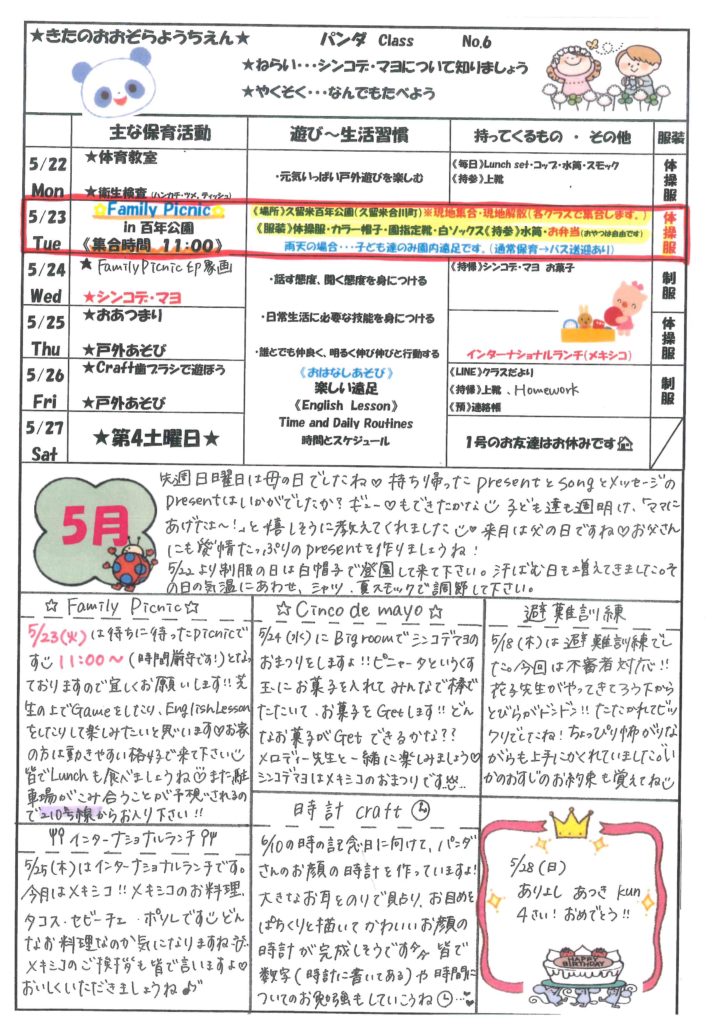 ★きたのおおぞらようちえん★ パンダ Class No.6
★ねらい・・・シンコデ・マヨについて知りましょう
★やくそく・・・なんでもたべよう
主な保育活動 遊び～生活習慣 持ってくるもの ・ その他 服装
5/22 Mon
★体育教室
★衛生検査(ハンカチ・ツメ,ティッシュ)
・元気いっぱい戸外遊びを楽しむ
《毎日》Lunch set・コップ・水筒・スモック
《持参》上靴
体操服
5/23 Tue
Family Picnic
in 百年公園
《集合時間 11:00》
《場所》久留米百年公園(久留米合川町)※現地集合・現地解散(各クラスで集合します。)
《服装》体操服・カラー帽子・園指定靴・白ソックス《持参》水筒・お弁当(おやつは自由です)
雨天の場合・・・子ども達のみ園内遠足です。(通常保育→バス送迎あり)
体操服
5/24 Wed
★FamilyPicnic印象画
★シンコデ・マヨ
・話す態度、聞く態度を身につける
《持帰》シンコデ・マヨ お菓子
制服
5/25 Thu
★おあつまり
★戸外あそび
・日常生活に必要な技能を身につける
・誰とでも仲良く、明るく伸び伸びと行動する
インターナショナルランチ(メキシコ)
体操服
5/26 Fri
★Craft歯ブラシで遊ぼう
★戸外あそび
《おはなしあそび》
楽しい遠足
《English Lesson》
Time and Daily Routines
時間とスケジュール
《LINE》クラスだより
《持帰》上靴、Homework
《預》連絡帳
制服
5/27 Sat
★第4土曜日★
1号のお友達はお休みです
5月
先週日曜日は母の日でしたね♡ 持ち帰ったpresentとsongとメッセージの
Presentはいかがでしたか？ギュー♡もできたかな 子ども達も週明け、「ママに
あげたよ～！」と嬉しそうに教えてくれました♡ 来月は父の日ですね♡お父さん
にも愛情たっぷりのpresentを作りましょうね！
5/22より制服の日は白帽子で登園して来て下さい。汗ばむ日も増えてきました。そ
の日の気温にあわせ、シャツ、夏スモックで調節して下さい。
☆ Family Picnic☆
5/23(火)は待ちに待ったpicnicで
す 11:00～(時間厳守です!)となっ
ておりますので宜しくお願いします!!芝
生の上でGameをしたり、EnglishLesson
をしたりして楽しみたいと思います♡お家
の方は動きやすい格好で来て下さい
皆でLunchも食べましょうね♡また駐
車場がこみ合うことが予想されるの
で210号線からお入り下さい!!
☆ Cinco de mayo ☆
5/24(水)にBigroomでシンコデマヨの
おまつりをしますよ!!ピニャータというくす
玉にお菓子を入れてみんなで棒で
たたいて、お菓子をGetします!!どん
なお菓子がGetできるかな??
メロディー先生と一緒に楽しみましょう♡
シンコデマヨはメキシコのおまつりです
避難訓練
5/18(木)は避難訓練でし
た。今回は不審者対応!!
花子先生がやってきてろう下から
とびらがドンドン!! たたかれてビッ
クリでしたね！ちょっぴり怖がりな
がらも上手にかくれていました。い
かのおすしのお約束も覚えてね
インターナショナルランチ
5/25(木)はインターナショナルランチです。
今月はメキシコ!!メキシコのお料理、
タコス・セビーチェ・ポソレです どん
なお料理なのか気になりますね
メキシコのご挨拶も皆で言いますよ♡
おいしくいただきましょうね♪
時計 craft
6/10の時の記念日に向けて、パンダ
さんのお顔の時計を作っていますよ!
大きなお耳をのりで貼り、お目めを
ぱちくりと描いてかわいいお顔の
時計が完成しそうです 皆で
数字(時計に書いてある)や時間に
ついてのお勉強もしていこうね
5/28(日)
ありよし あつき kun
4さい！おめでとう!!
HAPPY BIRTHDAY